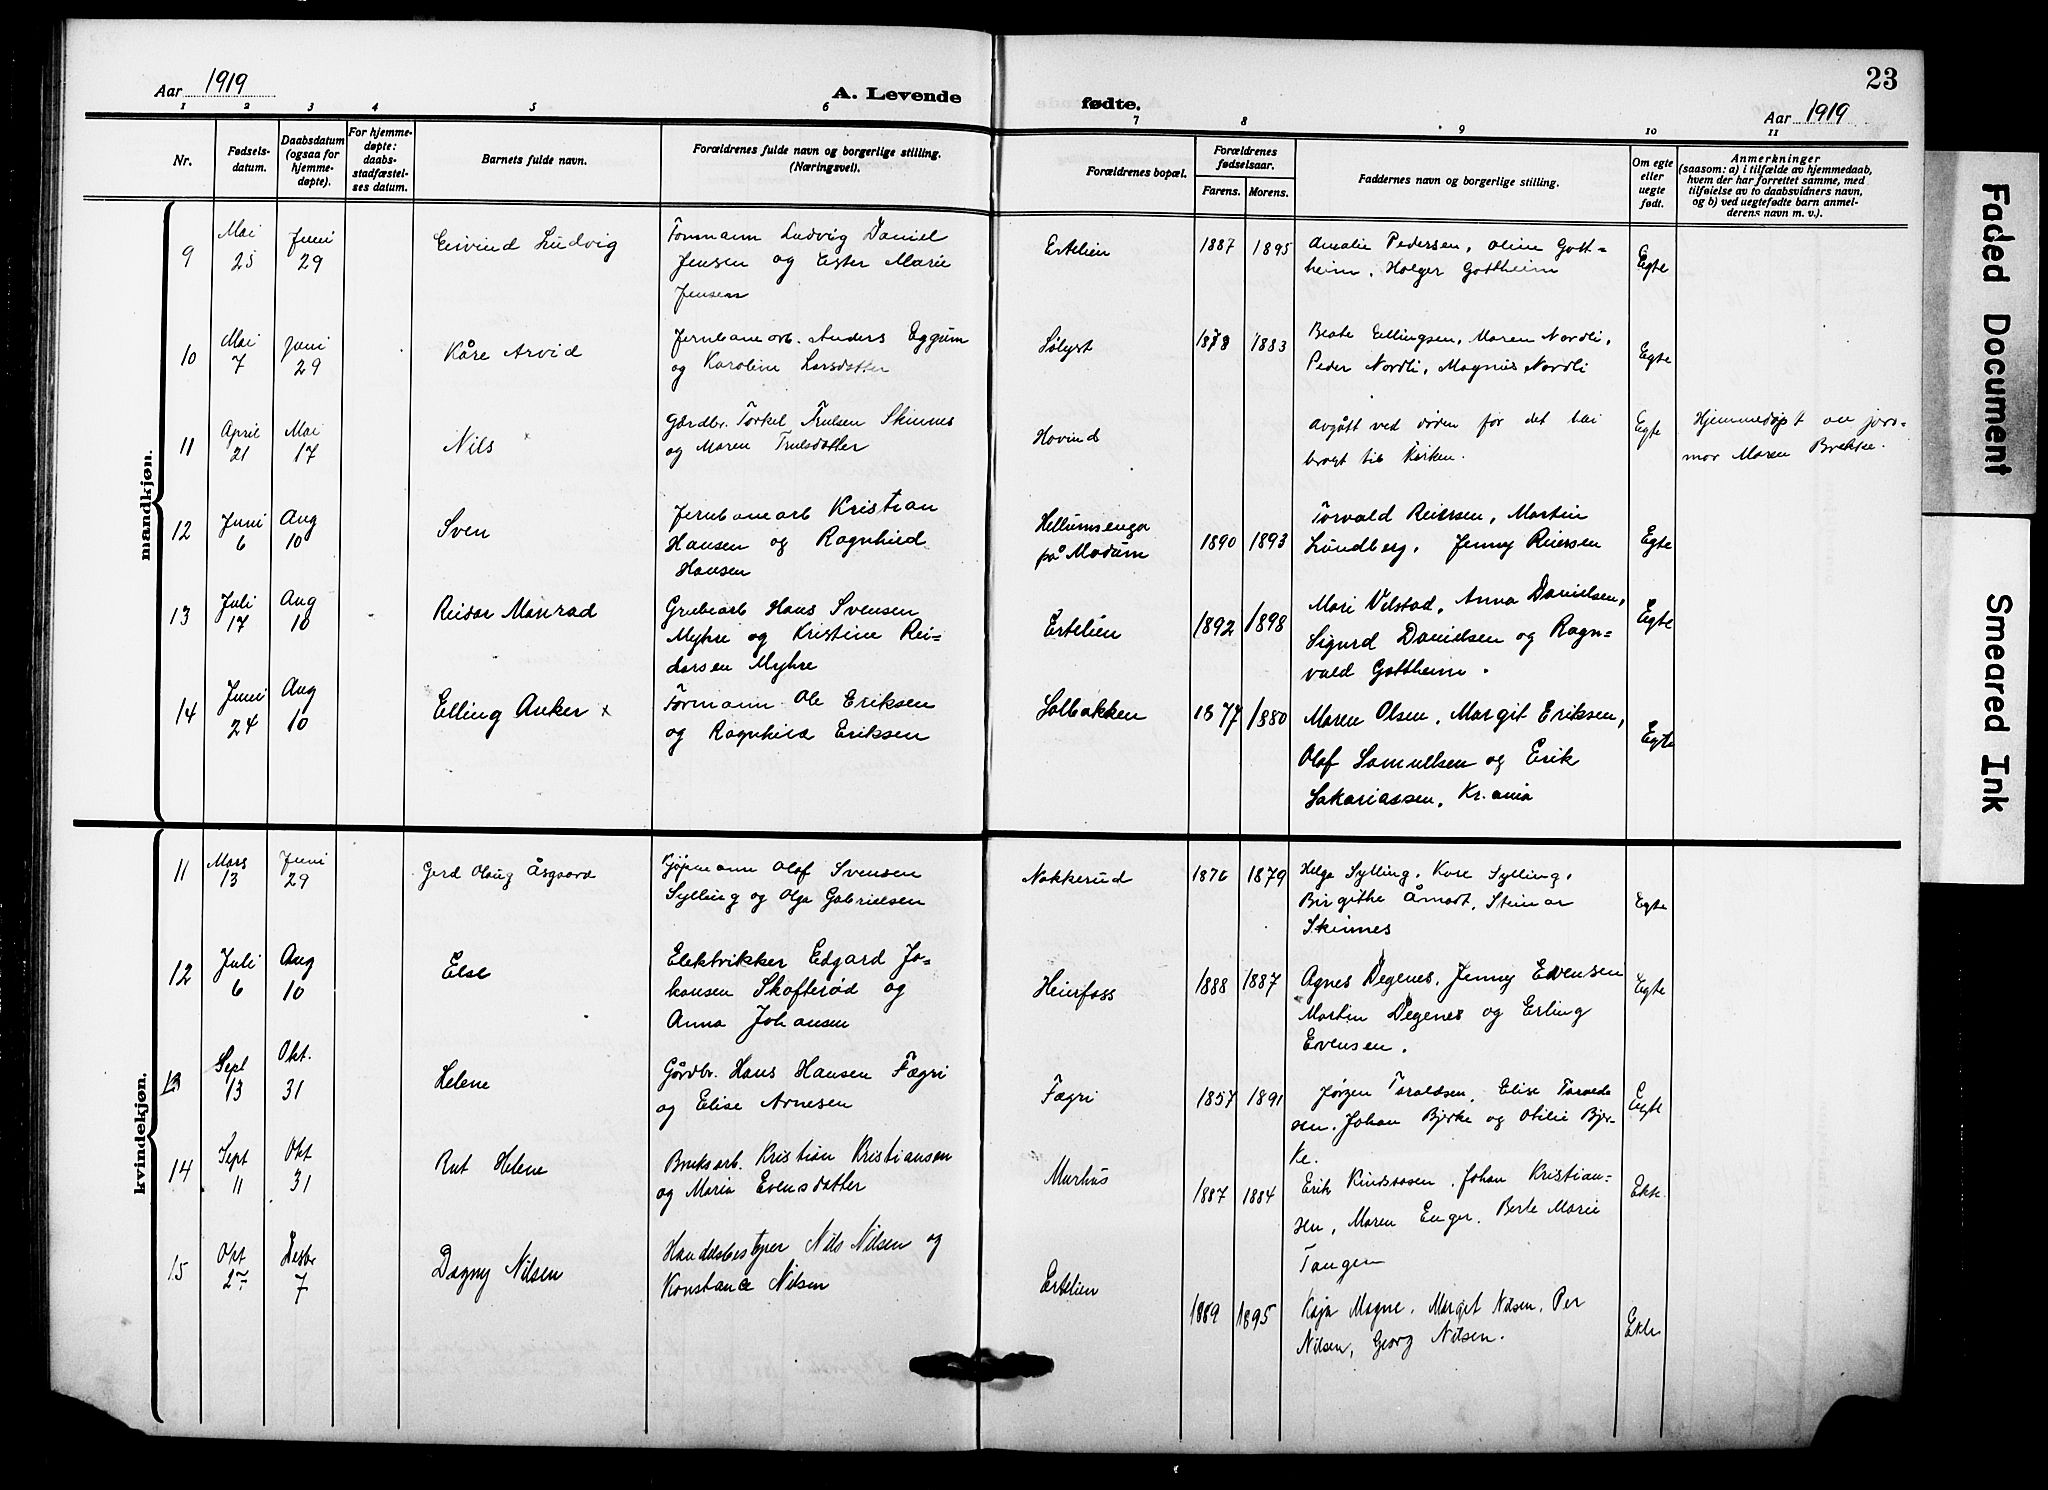 23
Aar 1919
A. Levende
fødte.
Aar 1919
1 2 3 4 5 6 7 8 9 10 11
Nr.
Fødsels-
datum.
Daabsdatum
(ogsaa for
hjemme-
døpte).
For hjemme-
døpte:
daabs-
stadfæstel-
ses datum.
Barnets fulde navn.
Forældrenes fulde navn og borgerlige stilling.
(Næringsvei).
Forældrenes bopæl.
Forældrenes
fødselsaar.
Farens. Morens.
Faddernes navn og borgerlige stilling.
Om egte
eller
uegte
født.
Anmerkninger
(saasom: a) i tilfælde av hjemmedaab,
hvem der har forrettet samme, med
tilføielse av to daabsvidners navn,
og b) ved uegtefødte barn anmel-
derens navn m. v.).
mandkjøn.
9
Mai
25
Juni
29
Eivind Ludvig
Formann Ludvig Daniel
Jensen og Ester Marie
Jensen
Ertelien
1887 1895
Amalie Pedersen, Oline Gott-
heim, Holger Gottheim
Egte
10
Mai
7
Juni
29
Kåre Arvid
Jernbanearb. Anders Eggum
og Karoline Larsdatter
Sølyst
1878 1883
Beate Ellingsen, Maren Nordli,
Peder Nordli, Magnus Nordli
Egte
11
April
21
Mai
17
Nils
Gardbr. Torkel Trulsen Skinnes
og Maren Trulsdatter
Hovind
Avgått ved døden før det blei
bragt til Kirken.
Egte
Hjemmedøpt av jor-
mor Maren Brekke.
12
Juni
6
Aug
10
Sven
Jernbanearb Kristian
Hansen og Ragnhild
Hansen
Hellumsenga
på Modum
1890 1893
Torvald Reiersen, Martin
Lundberg, Jenny Reiersen
Egte
13
Juli
17
Aug
10
Reidar Manrad
Grubearb Hans Svensen
Myhre og Kristine Rei-
darsen Myhre
Ertelien
1892 1898
Mari Velstad, Anna Danielsen,
Sigurd Danielsen og Ragn-
vald Gottheim.
Egte
14
Juni
24
Aug
10
Elling Anker x
Formann Ole Eriksen
og Ragnhild Eriksen
Solbakken
1877 1880
Maren Olsen, Margit Eriksen,
Olaf Samuelsen og Erik
Sakariassen, Kr.ania
Egte
kvindekjøn.
11
Mars
13
Juni
29
Gerd Olaug Åsgaard
Kjøpmann Olaf Svensen
Sylling og Olga Gabrielsen
Nakkerud
1876 1879
Helga Sylling, Kåre Sylling,
Birgithe Åmodt, Steinar
Skinnes
Egte
12
Juli
6
Aug
10
Else
Elektrikker Edgard Jo-
hansen Skofterød og
Anna Johansen
Heierfoss
1888 1887
Agnes Degenes, Jenny Evensen
Martin Degenes og Erling
Evensen.
Egte
13
Sept
13
Okt.
31
Helene
Gårdbr. Hans Hansen Fægri
og Elise Arnesen
Fægri
1857 1891
Jørgen Taraldsen, Elise Taralds
sen, Johan Bjerke og Otilie Bjer-
ke.
Egte
14
Sept
11
Okt
31
Rut Helene
Bruksarb. Kristian Kristiansen
og Maria Evensdatter
Murhus
1887 1884
Erik Kindsaasen, Johan Kristian-
sen, Maren Enger, Berte Marie
Tangen
Ekte.
15
Okt
2
Desbr
7
Dagny Nilsen
Handelsbestyrer Nils Nilsen og
Konstance Nilsen
Ertelien
1889 1895
Kaja Magne, Margit Nilsen, Per
Nilsen, Georg Nilsen.
Ekte
Faded Document
Smeared Ink